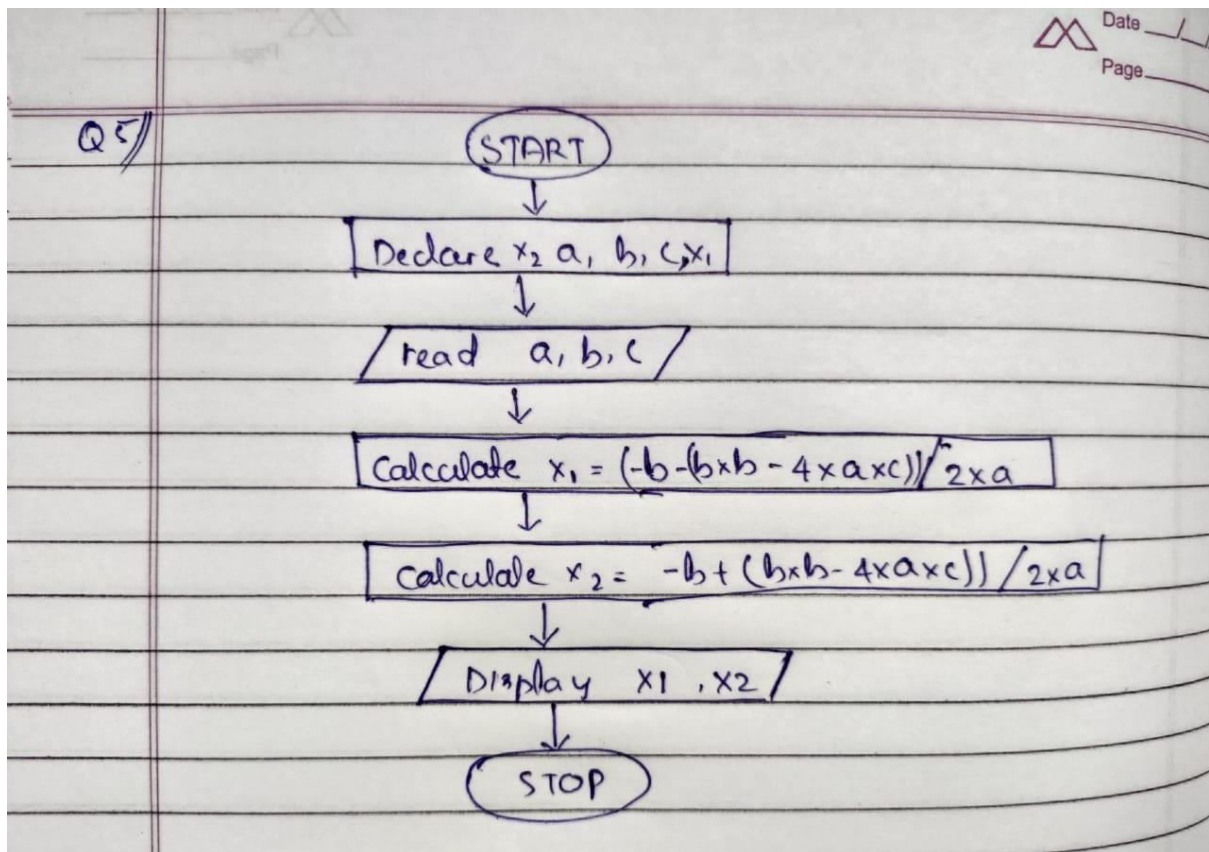 Date
Page
Q5
START
Declare x₂ a, b, c, x₁
read a, b, c
Calculate x₁ = (-b-(b×b - 4×a×c))/2×a
Calculate x₂ = -b+(b×b-4×a×c))/2×a
Display x1, x2
STOP